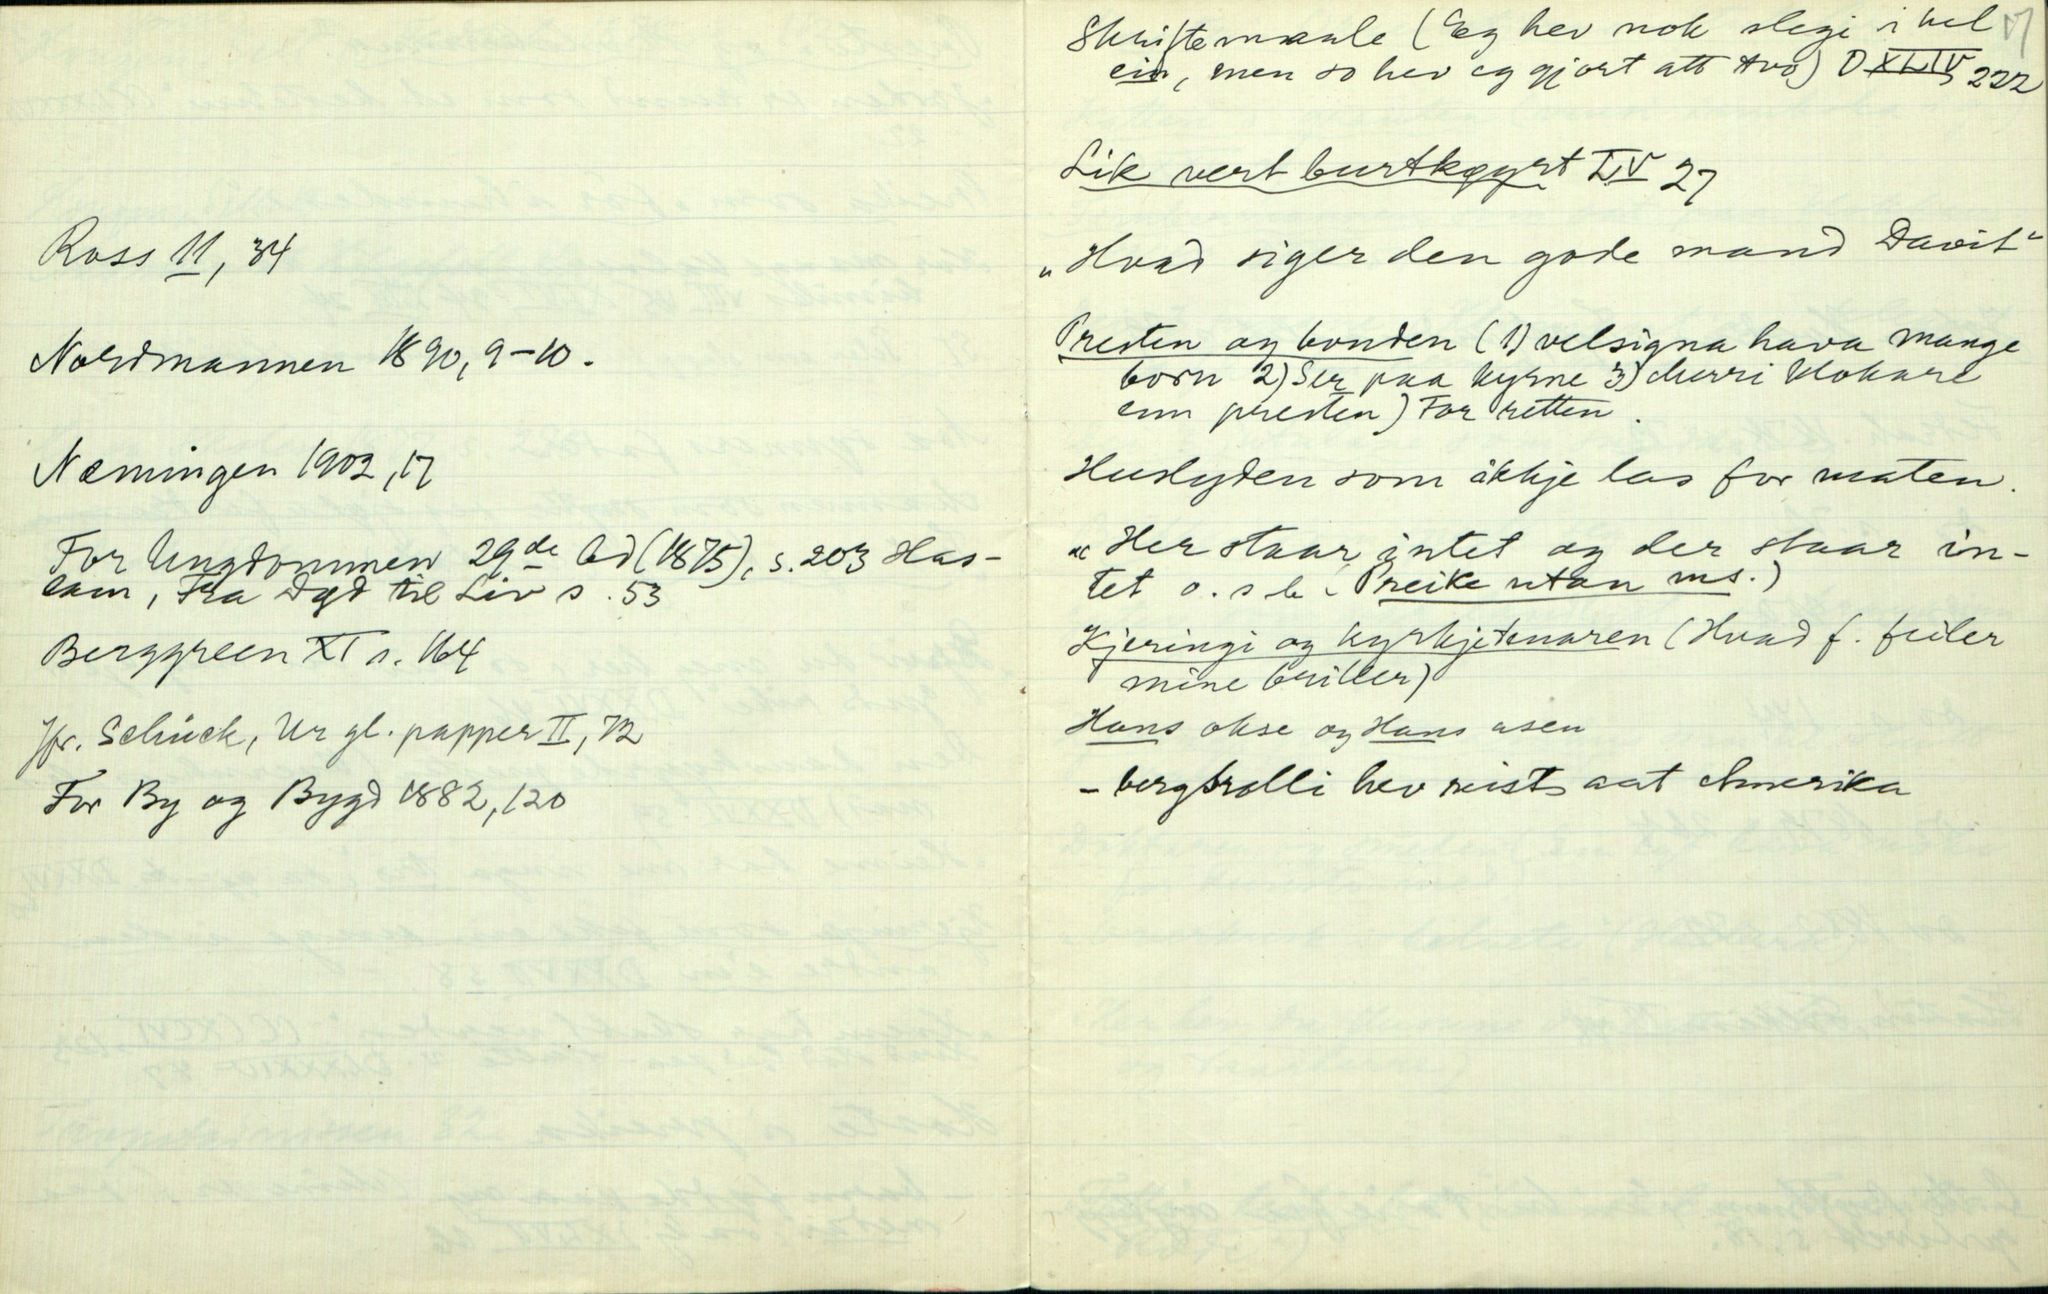 Ross 11, 34
Nordmannen 1890, 9-10.
Næmingen 1902, 17
For Ungdommen 29de bd (1875), s. 203 Has-
lam, Fra Død til Liv s. 53
Berggreen XI s. 164
Jfr. Schück, Ur gl. papper II, 72
For By og Bygd 1882, 120
Skriftemaale (Eg hev nok slegi i hel
ein, men so hev eg gjort att tvo) D XLIV, 222
Lik vert burtkøyrt LV 27
„Hvad siger den gode mand David“
Presten og bonden (1) velsigna hava mange
born 2) Ser paa kyrne 3) Merri klokare
enn presten) For retten.
Huslyden som ikkje las for maten.
„Her staar intet og der staar in-
tet o.s.b. (Preike utan ms.)
Kjeringi og kyrkjetenaren (Hvad f. feiler
mine briller)
Hans okse og Hans asen
- bergtrolli hev reist aat Amerika